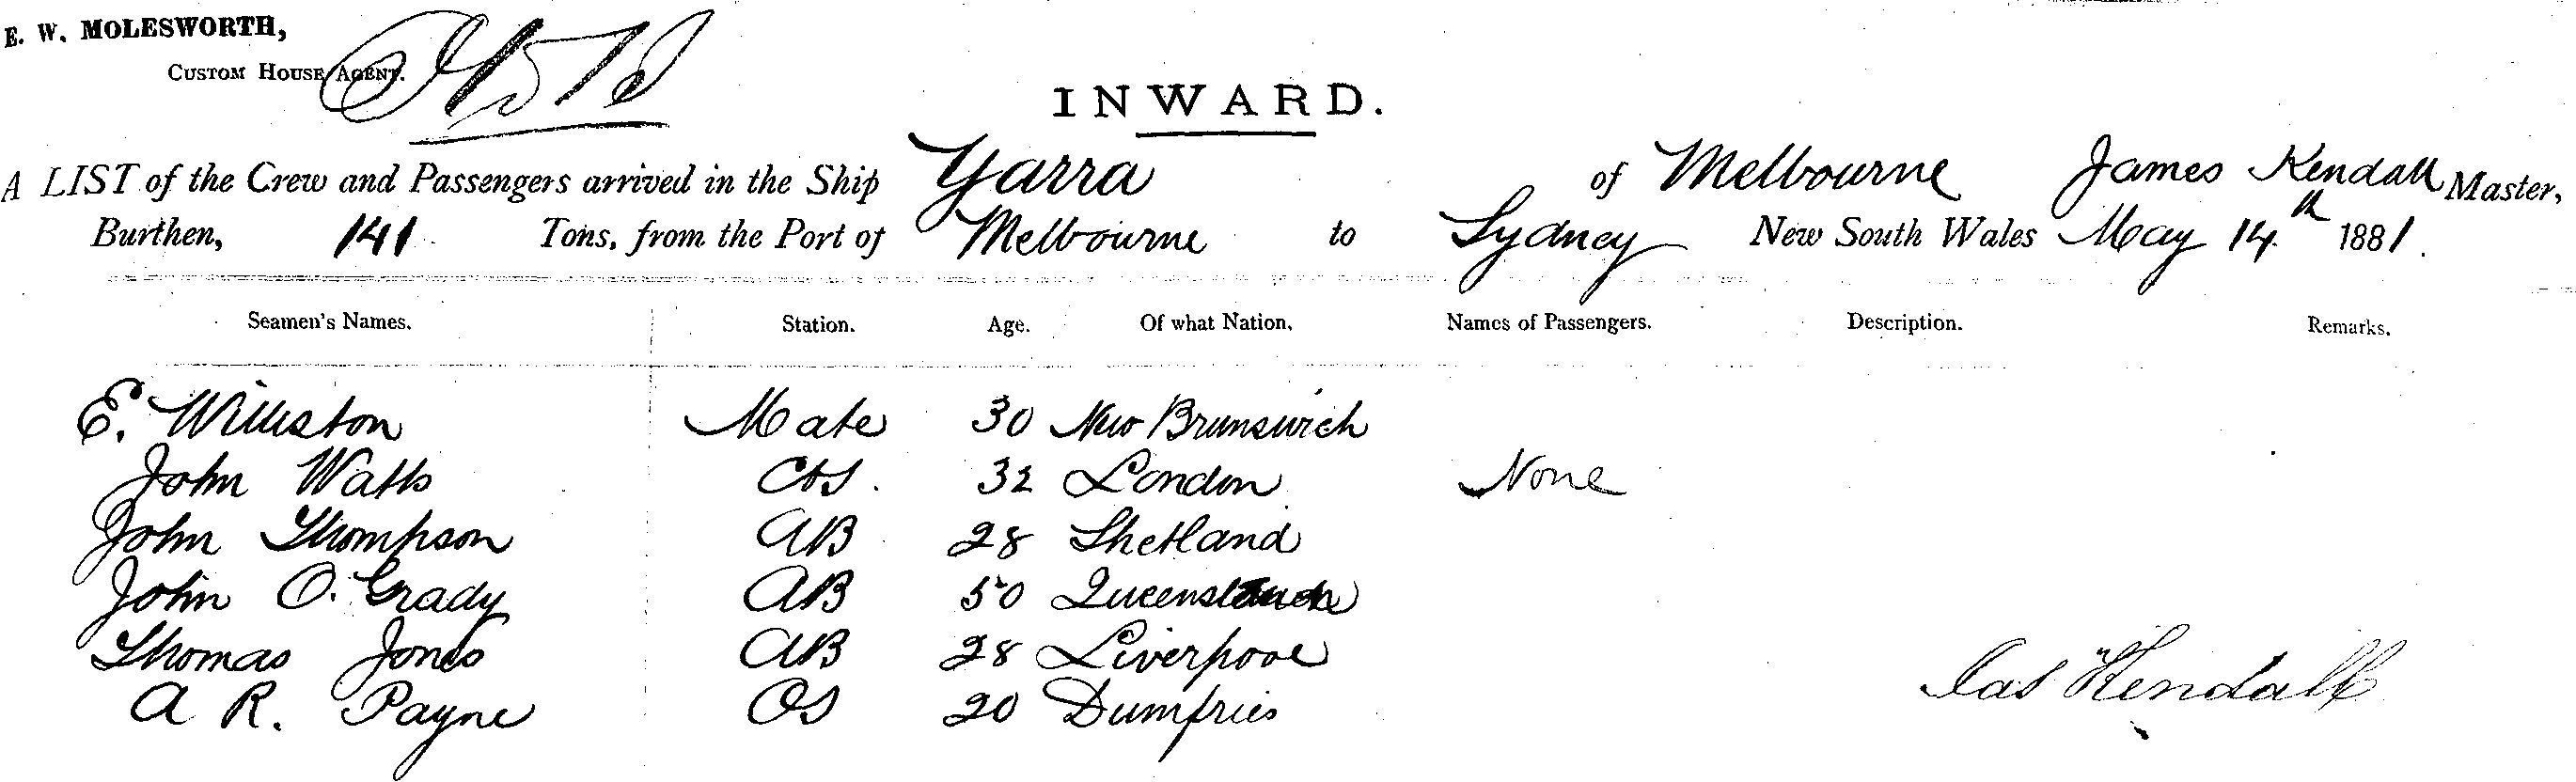 E. W. MOLESWORTH,
CUSTOM HOUSE AGENT.
INWARD.
A LIST of the Crew and Passengers arrived in the Ship Yarra of Melbourne James Kendall Master,
Burthen, 141 Tons, from the Port of Melbourne to Sydney New South Wales May 14th 1881.
Seamen's Names. Station. Age. Of what Nation. Names of Passengers. Description. Remarks.
E. Williston Mate 30 New Brunswick
John Watts 32 London None
John Thompson AB 28 Shetland
John O. Grady AB 50
Thomas Jones AB 28 Liverpool
A R. Payne OS 20 Dumfries
Jas Kendall